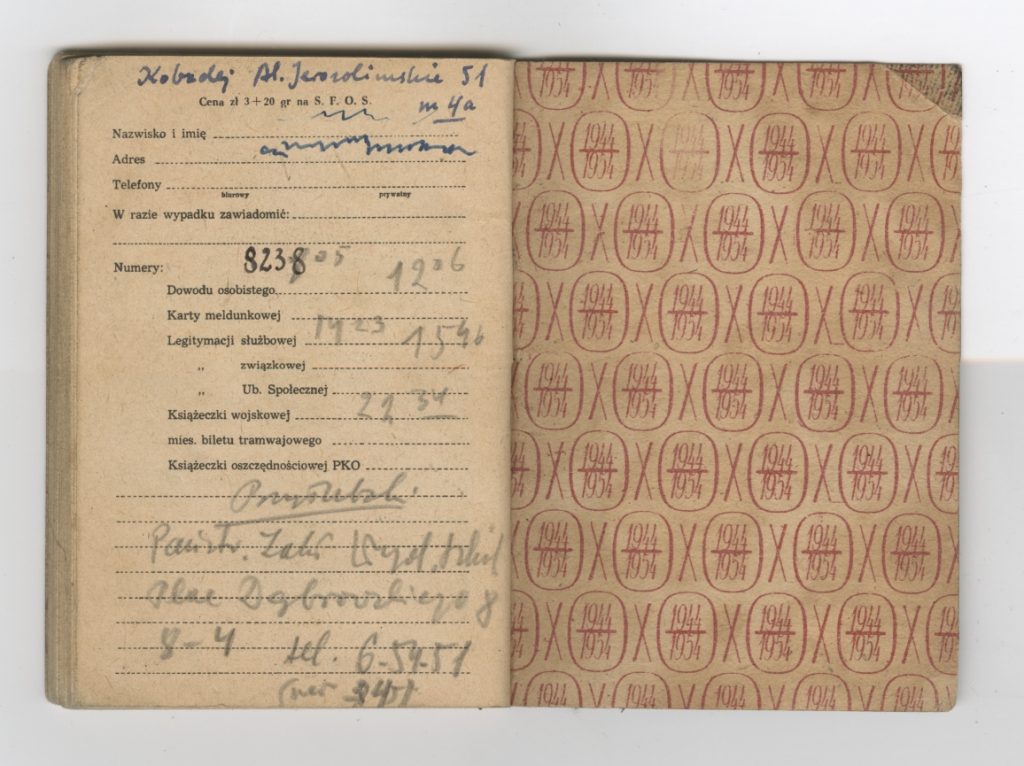 Kobzdej Al. Jerozolimskie 51
m 4a
Cena zł 3+20 gr na S. F. O. S.
Nazwisko i imię
Adres
Telefony
biurowy prywatny
W razie wypadku zawiadomić:
Numery:
8238 05
12 06
Dowodu osobistego
Karty meldunkowej
19 23
Legitymacji służbowej
15 46
„ związkowej
„ Ub. Społecznej
Książeczki wojskowej
21 34
mies. biletu tramwajowego
Książeczki oszczędnościowej PKO
Państw. Zakł Wyd. Szkol
Plac Dąbrowskiego 8
8-4 tel. 6-54-51
1944
1954
X